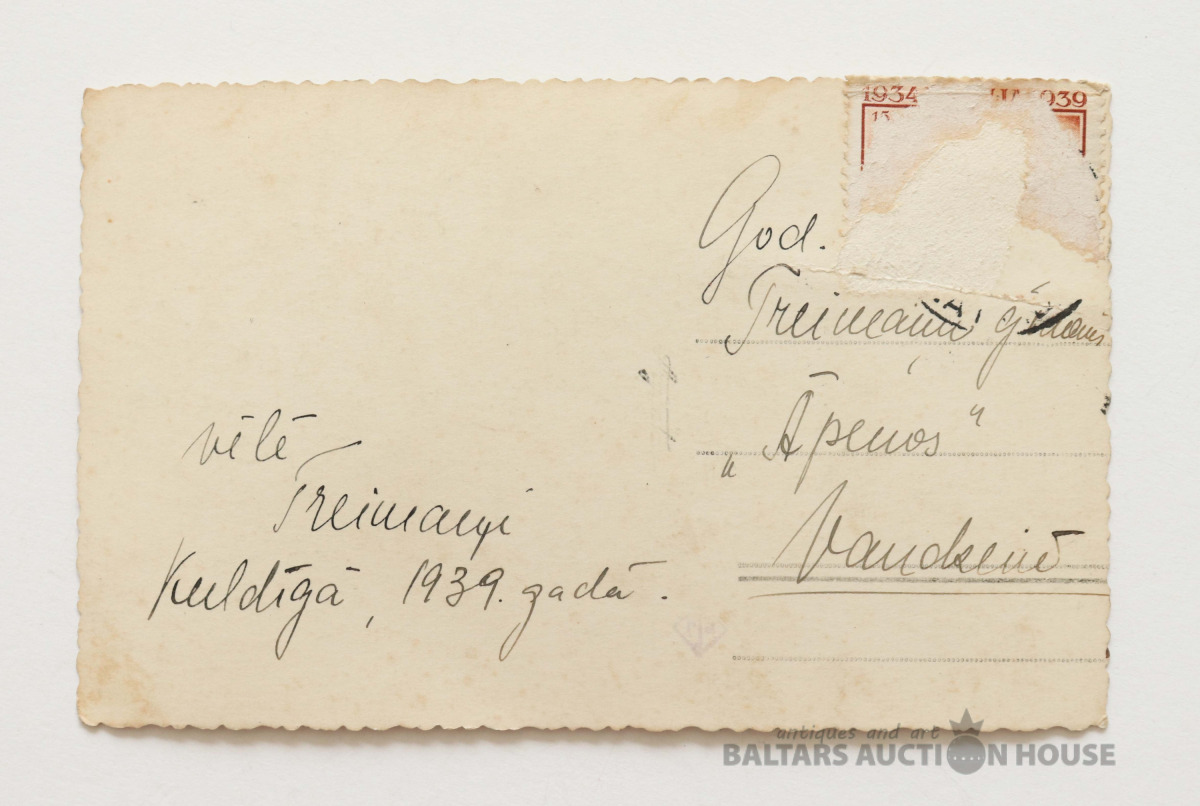 1934 1939
15
God.
Treimaņu ģimenei
„Āpeņos“
Vandzenē
vēlē
Treimaņi
Kuldīgā, 1939. gadā.
antiques and art
BALTARS AUCTION HOUSE